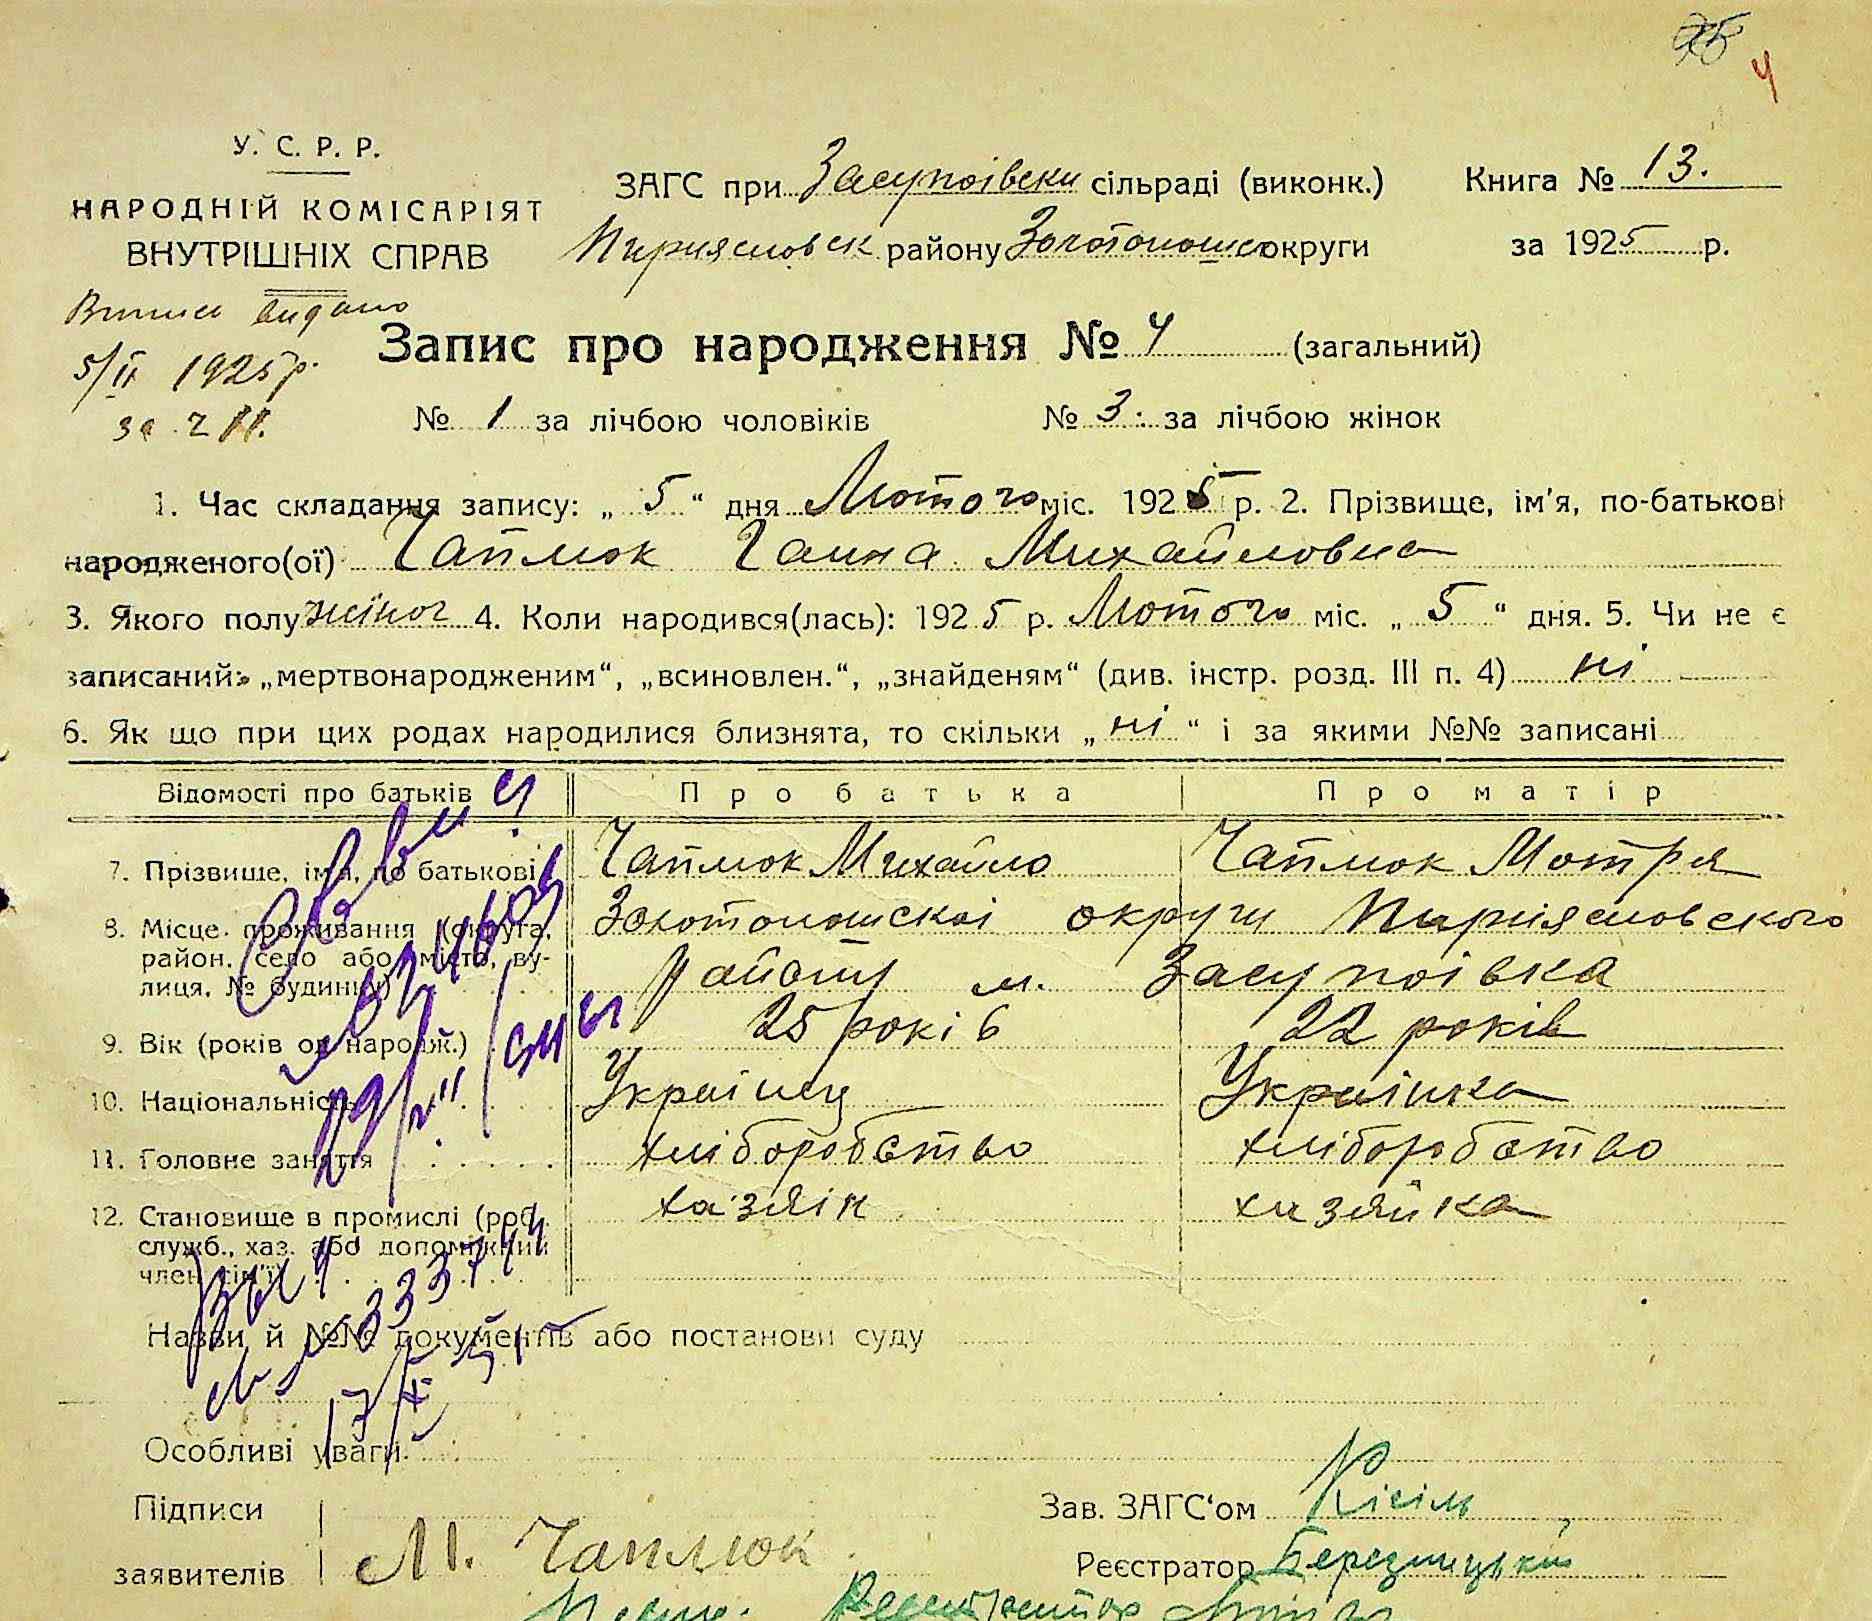 4
У. С. Р. Р.
НАРОДНІЙ КОМІСАРІЯТ
ВНУТРІШНІХ СПРАВ
ЗАГС при Засупоівски сільраді (виконк.)
Книга № 13.
району Золотонош округи
за 1925 р.
Випись видано
5/II 1925 р.
за
Запис про народження № 4 (загальний)
№ 1 за лічбою чоловіків № 3. за лічбою жінок
1. Час складання запису: „ 5 “ дня Лютого міс. 1925 р. 2. Прізвище, ім'я, по-батькові
народженого(ої) Чаплюк Ганна Михайловна
3. Якого полу жіноч 4. Коли народився(лась): 1925 р. Лютого міс. „ 5 “ дня. 5. Чи не є
записаний: „мертвонародженим“, „всиновлен.“, „знайденям“ (див. інстр. розд. III п. 4) ні
6. Як що при цих родах народилися близнята, то скільки „ ні “ і за якими №№ записані
Відомості про батьків Про батька Про матір
7. Прізвище, ім'я, по батькові Чаплюк Михайло Чаплюк Мотря
8. Місце проживання (округа, район, село або місто, вулиця, № будинку) Золотоношскоі округи
району м. Засупоівка
9. Вік (років од народж.) 25 років 22 років
10. Національність Украінец Украінка
11. Головне заняття хліборобство хліборобство
12. Становище в промислі (роб. служб., хаз. або допоміжний член сім'ї) хазяін хазяйка
Назви й №№ документів або постанови суду
Особливі уваги
Підписи
заявителів М. Чаплюк
Зав. ЗАГС‘ом Кісіль
Реєстратор